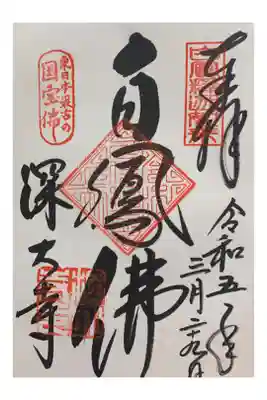 奉拝
令和五年
三月二十九日
白鳳佛
深大寺
東日本最古の
国宝佛